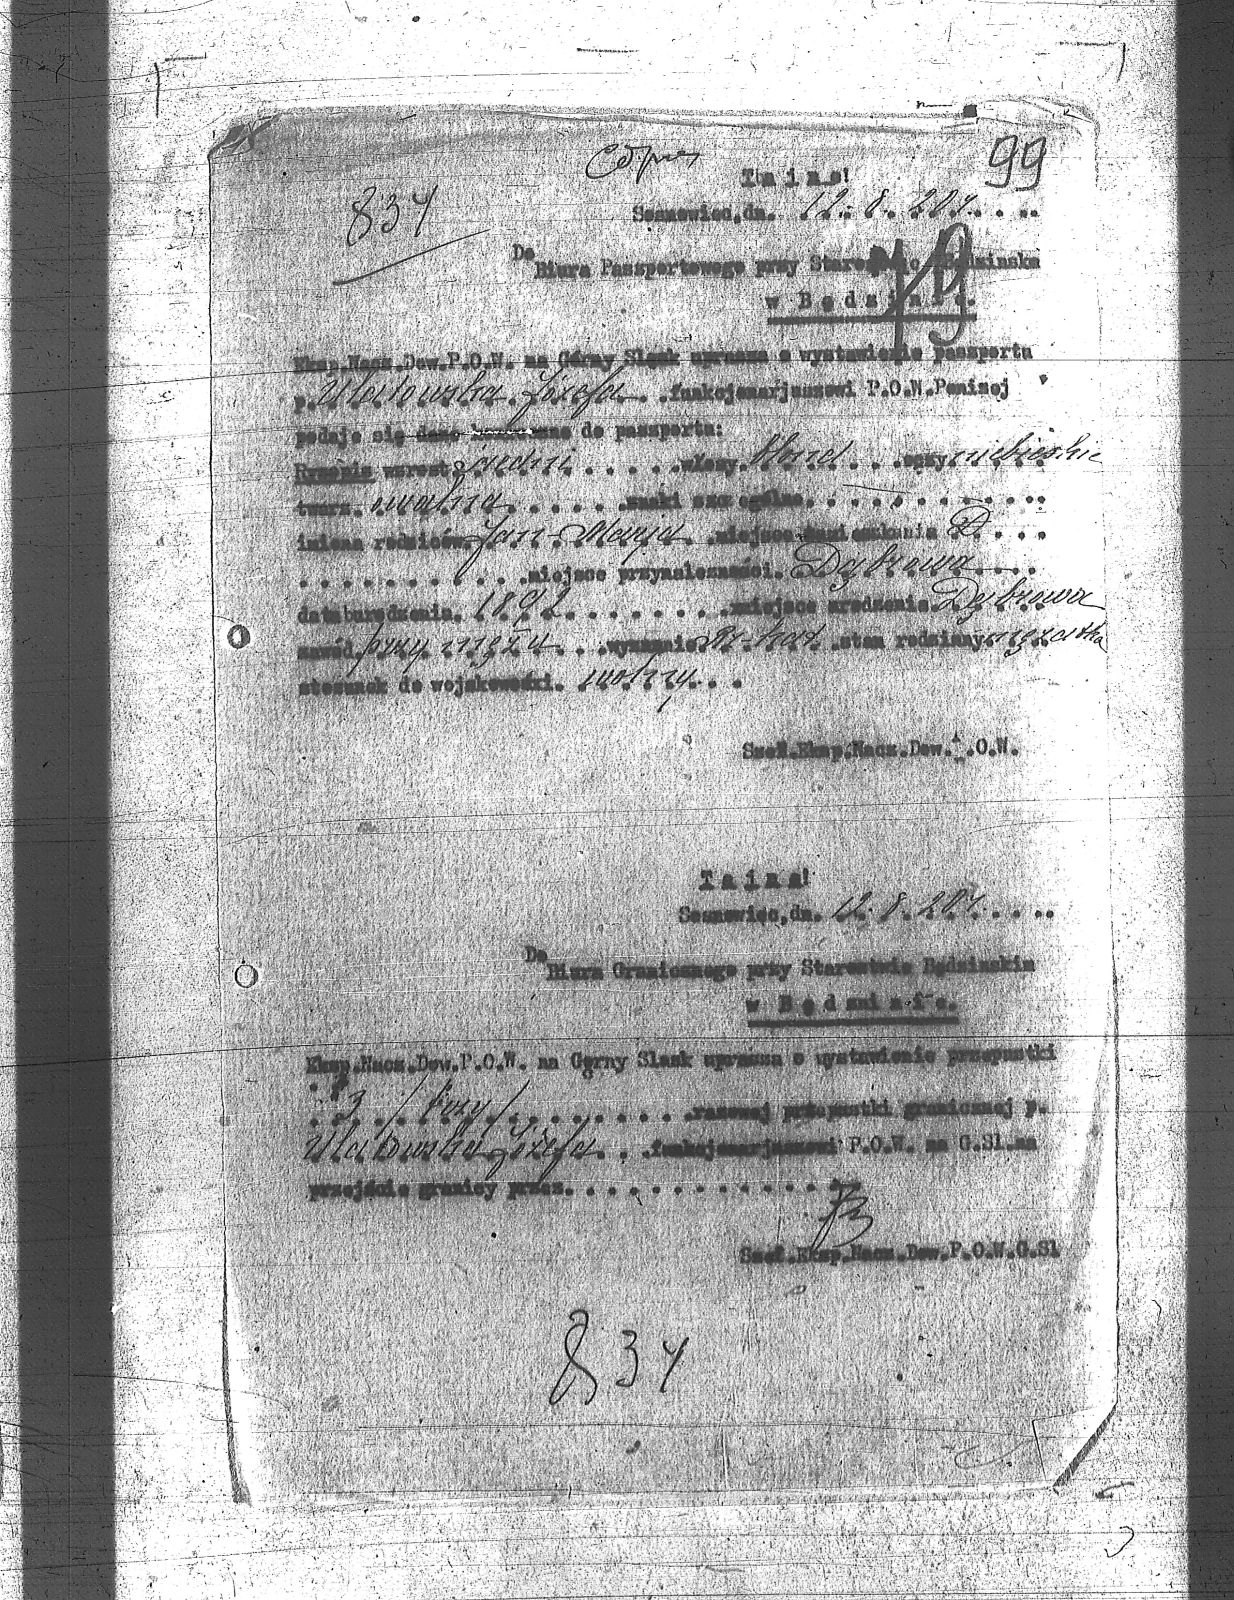 99
Tajne!
834
Sosnowiec,dn. 12. 8. 20r.
Do
Biura Passportowego przy Starostwie Będzinska
w Będzinie.
Eksp.Nacz.Dow.P.O.W. na Górny Sląsk uprasza o wystawienie passportu
p. Ulatowska Józefa funkcjonarjuszowi P.O.W.Poniżej
podaje się dane do passportu:
Rysopis wzrost średni włosy blond oczy niebieskie
twarz owalna znaki szczególne
imiona rodziców Jan - Marja miejsce zamieszkania D.
miejsce przynależności. Dąbrowa
data urodzenia. 1892 miejsce urodzenia Dąbrowa
zawód przy mężu wyznanie Rz-kat. stan rodzinny mężatka
stosunek do wojskowości. wolny
Szef.Eksp.Nacz.Dow.P.O.W.
Tajne!
Sosnowiec,dn. 12. 8. 20r.
Do
Biura Granicznego przy Starostwie Będzinskim
w Będzinie.
Eksp.Nacz.Dow.P.O.W. na Górny Slask uprasza o wystawienie przepustki
3 /trzy/ razowej przepustki granicznej p.
Ulatowska Józefa funkcjonarjuszowi P.O.W. na G.Sl.na
przejście granicy przez
Szef.Eksp.Nacz.Dow.P.O.W.G.Sl
834